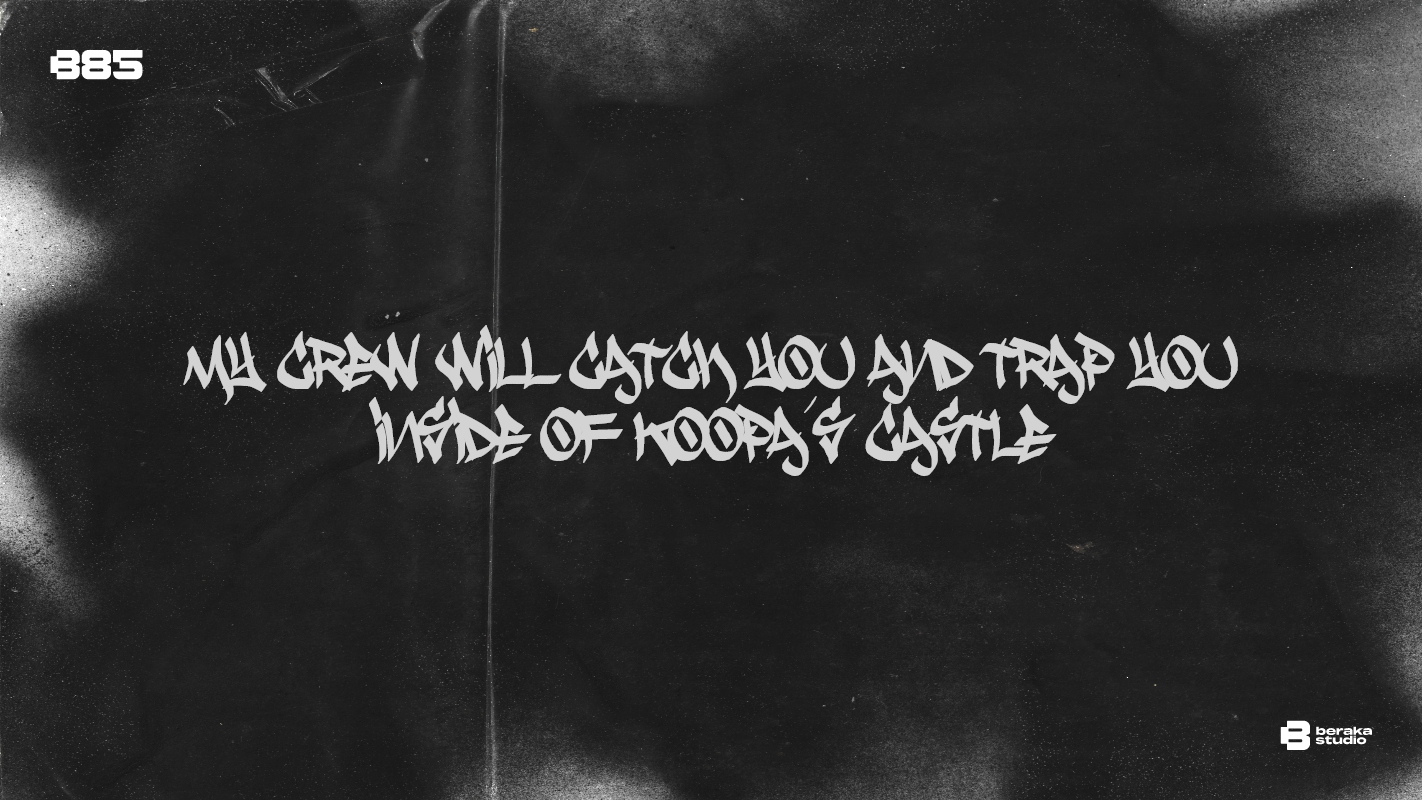 B85
MY CREW WiLL CATCh YOU AND TRAP YOU
iNSiDE OF KOOPA'S CASTLE
beraka
studio